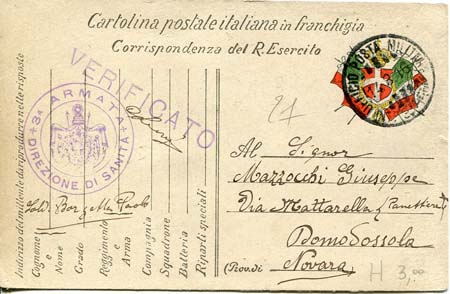 Cartolina postale italiana in franchigia
Corrispondenza del R. Esercito
VERIFICATO
3ª ARMATA
DIREZIONE DI SANITÀ
POSTA MILITARE
27
Al Signor
Mazzocchi Giuseppe
Via Mattarella (Panettiere)
Domodossola
(Prov. di) Novara
H 3,00
Indirizzo del mittente da riprodurre nelle risposte
Cognome e Nome
Grado
Reggimento e Arma
Compagnia
Squadrone
Batteria
Riparti speciali
Sold. Paolo